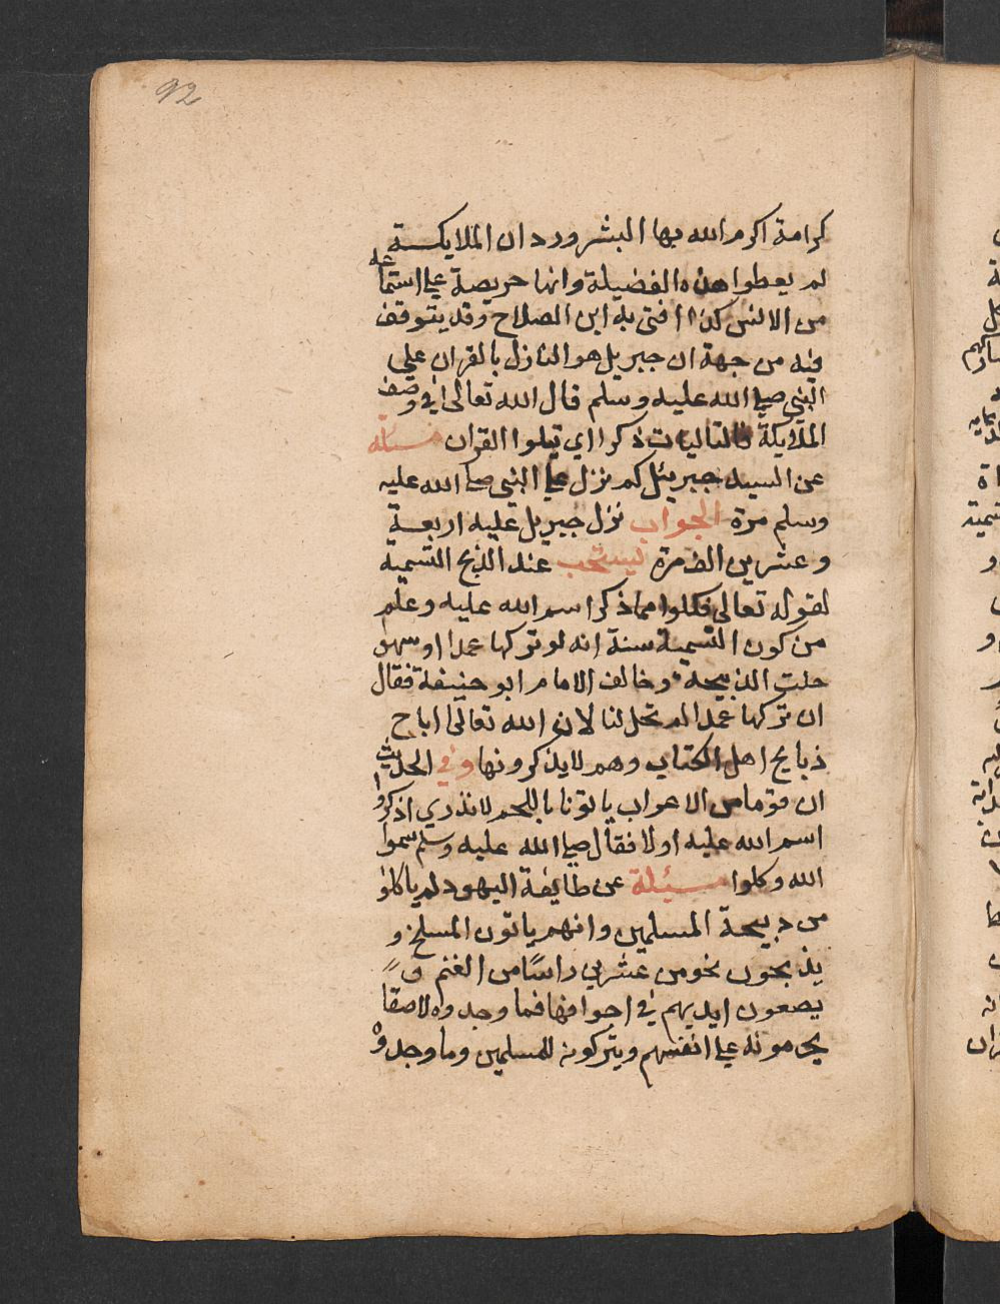 92
كرامة اكرم الله بها البشر وورد ان الملايكة
لم يعطوا هذه الفضيلة وانها حريصة علي استماعه
من الانس كذا افتى به ابن الصلاح وقد يتوقف
فيه من جهة ان جبريل هو النازل بالقران علي
النبي صلي الله عليه وسلم قال الله تعالى في وصف
الملايكة فالتاليات ذكرا اي تتلوا القران مسئلة
عن السيد جبريئل كم نزل علي النبي صلي الله عليه
وسلم مرة الجواب نزل جبريل عليه اربعة
وعشرين الف مرة يستحب عند الذبح التسمية
لقوله تعالى فكلوا مما ذكر اسم الله عليه وعلم
من كون التسمية سنة انه لو تركها عمدا او سهو
حلت الذبيحة وخالف الامام ابو حنيفة فقال
ان تركها عمدا لم تحل لنا لان الله تعالى اباح
ذبايح اهل الكتاب وهم لا يذكرونها وفي الحديث
ان قوما من الاعراب ياتونا باللحم لا نذري اذكروا
اسم الله عليه او لا فقال صلي الله عليه وسلم سموا
الله وكلوا مسيئلة عن طايفة اليهود لم ياكلوا
من دبيحة المسلمين وانهم ياتون المسلخ و
يذبحون نحو من عشرين راسًا من الغنم و
يصعون ايديهم في اجوافها فما وجدوه لاصقا
يحرمونه علي انفسهم ويتركونه للمسلمين وما وجدوْ